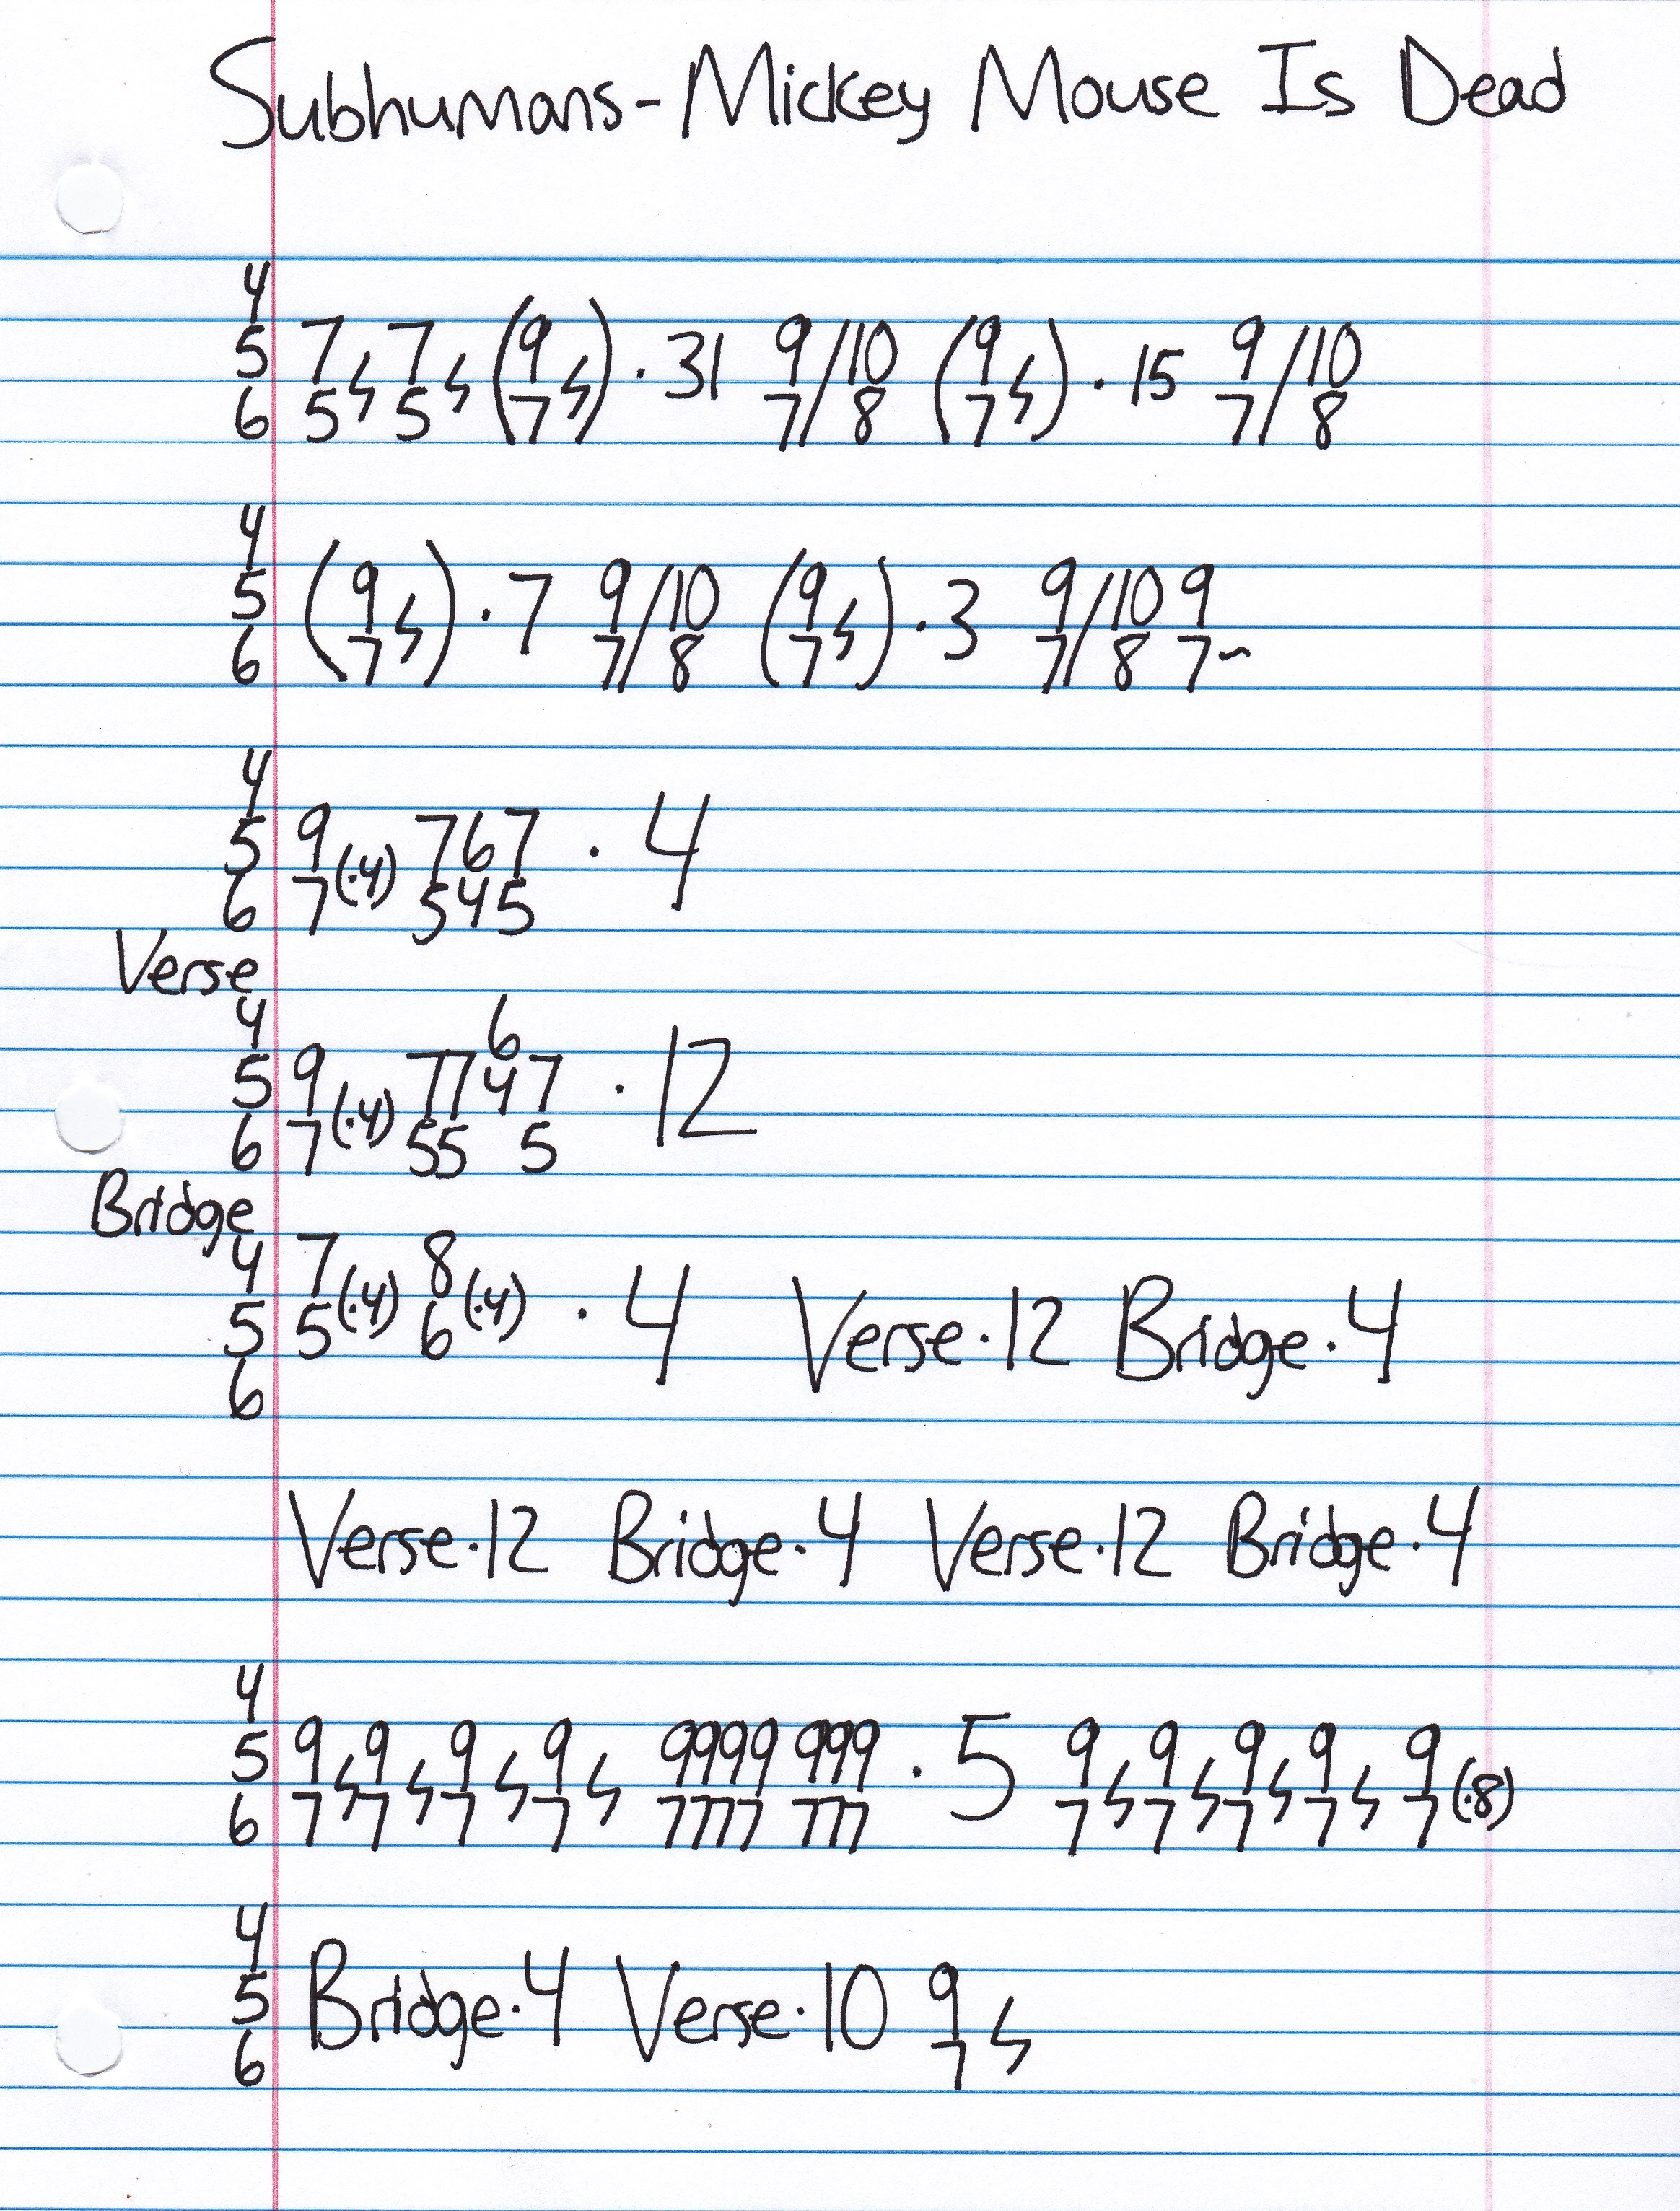 Subhumans - Mickey Mouse Is Dead
4
5 7ϟ 7ϟ (9ϟ) · 31 9/10 (9ϟ) · 15 9/10
6 5 5 7 7/8 7 7/8
4
5 (9ϟ) · 7 9/10 (9ϟ) · 3 9/10 9
6 7 7/8 7 7/8 7~
4
5 9(·4) 767 · 4
6 7 545
Verse
4 6
5 9(·4) 7747 · 12
6 7 55 5
Bridge
4 7(·4) 8(·4) · 4 Verse · 12 Bridge · 4
5 5 6
6
Verse · 12 Bridge · 4 Verse · 12 Bridge · 4
4
5 9ϟ 9ϟ 9ϟ 9ϟ 9999 999 · 5 9ϟ 9ϟ 9ϟ 9ϟ 9(·8)
6 7 7 7 7 7777 777 7 7 7 7 7
4
5 Bridge · 4 Verse · 10 9ϟ
6 7